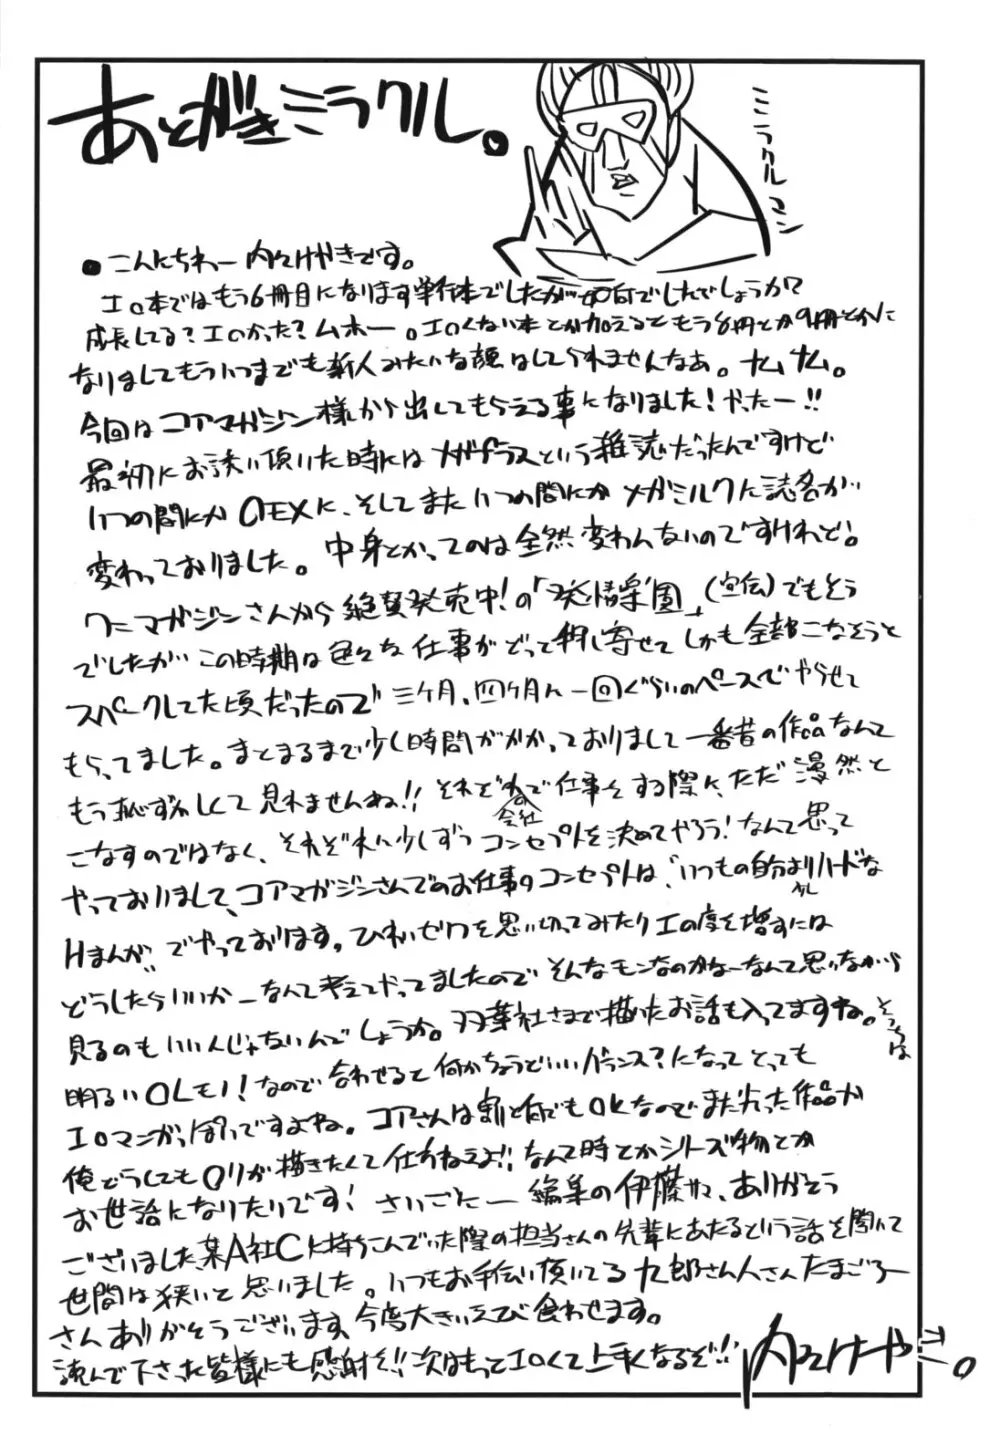 あとがきミラクル。
ミラクルマン
●こんにちわー内々けやきです。
エロ本ではもう6冊目になります単行本でしたが如何でしたでしょうか?
成長してる?エロかった?ムホー。エロくない本とか加えるともう8冊とか9冊とかに
なりましてもういつまでも新人みたいな顔はしてられませんなあ。ナムナム。
今回はコアマガジン様から出してもらえる事になりました!やったー!!
最初にお誘い頂いた時にはメガプラスという雑誌だったんですけど
いつの間にか OEXに、そしてまたいつの間にかメガミルクに誌名が
変わっておりました。中身とかってのは全然変わんないのですけれど!
ワニマガジンさんから絶賛発売中!の「発情楽園」(宣伝)でもそう
でしたが この時期は色々な仕事がどって押し寄せてしかも全部こなそうと
スパークしてた頃だったので三ヶ月、四ヶ月に一回ぐらいのペースでやらせて
もらってました。まとまるまで少し時間がかかっておりまして一番昔の作品なんて
もう恥ずかしくて見れませんね!!それぞれの会社で仕事をする際に、ただ漫然と
こなすのではなく、それぞれに少しずつコンセプトを決めてやろう!なんて思って
やっておりまして、コアマガジンさんでのお仕事のコンセプトは、"いつもの自分より少しハードな
Hまんが"でやっております。ひわいゼリフを思い切ってみたりエロ度を増すには
どうしたらいいかーなんて考えてやってましたので そんなモンなのかなーなんて思いながら
見るのもいいんじゃないんでしょうか。双葉社さまで描いたお話も入ってますね。そっちは
明るいOLモノ!なので合わせると何かちょうどいいバランス?になってとっても
エロマンガっぽいですよね。コアさんは割と何でもOKなのでまた尖った作品か
俺どうしてもロリが描きたくて仕方ねえよ!!なんて時とかシリーズ物とか
お世話になりたいです!さいごにー編集の伊藤サマ、ありがとう
ございました某A社Cに持ちこんでいた際の担当さんの先輩にあたるという話を聞いて
世間は狭いと思いました。いつもお手伝い頂いてる九郎さん人さんたまごろー
さんありがとうございます、今度大きいえび食わせます。
読んで下さった皆様にも感謝を!!次はもってエロくて上手くなるぞ!!内々けやき。